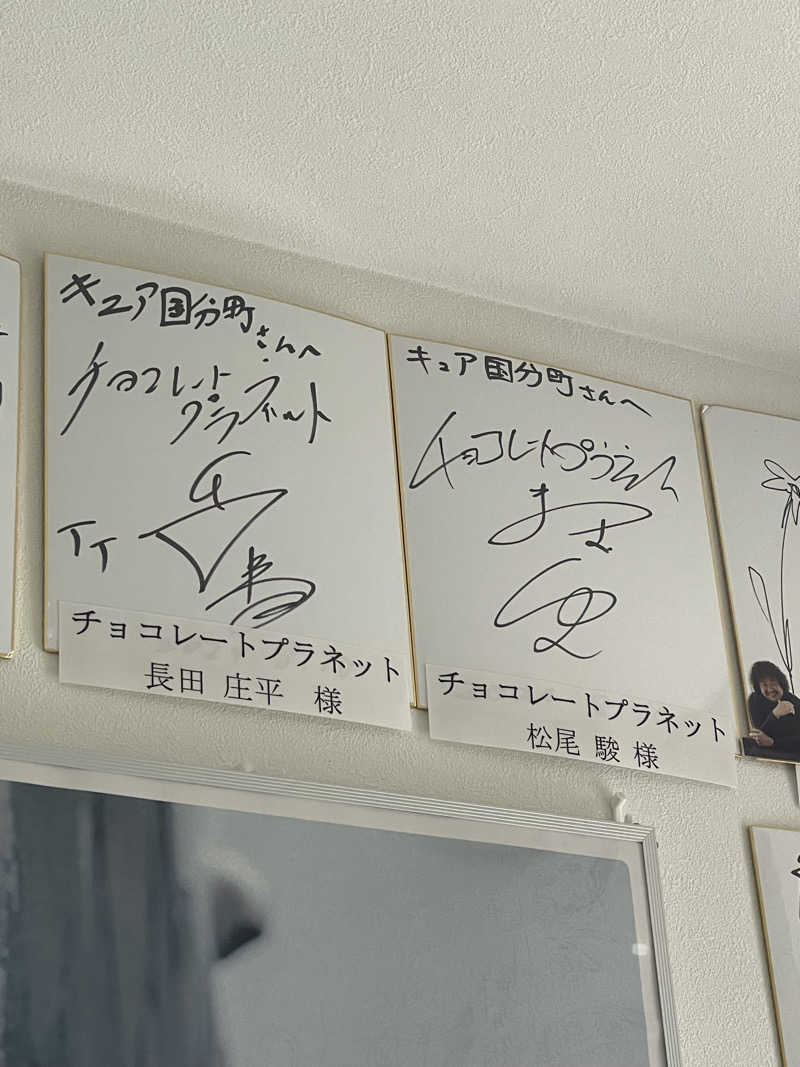 キュア国分町
さんへ
チョコレート
プラネット
TT
チョコレートプラネット
長田 庄平 様
キュア国分町さんへ
チョコレートプラネット
チョコレートプラネット
松尾 駿 様